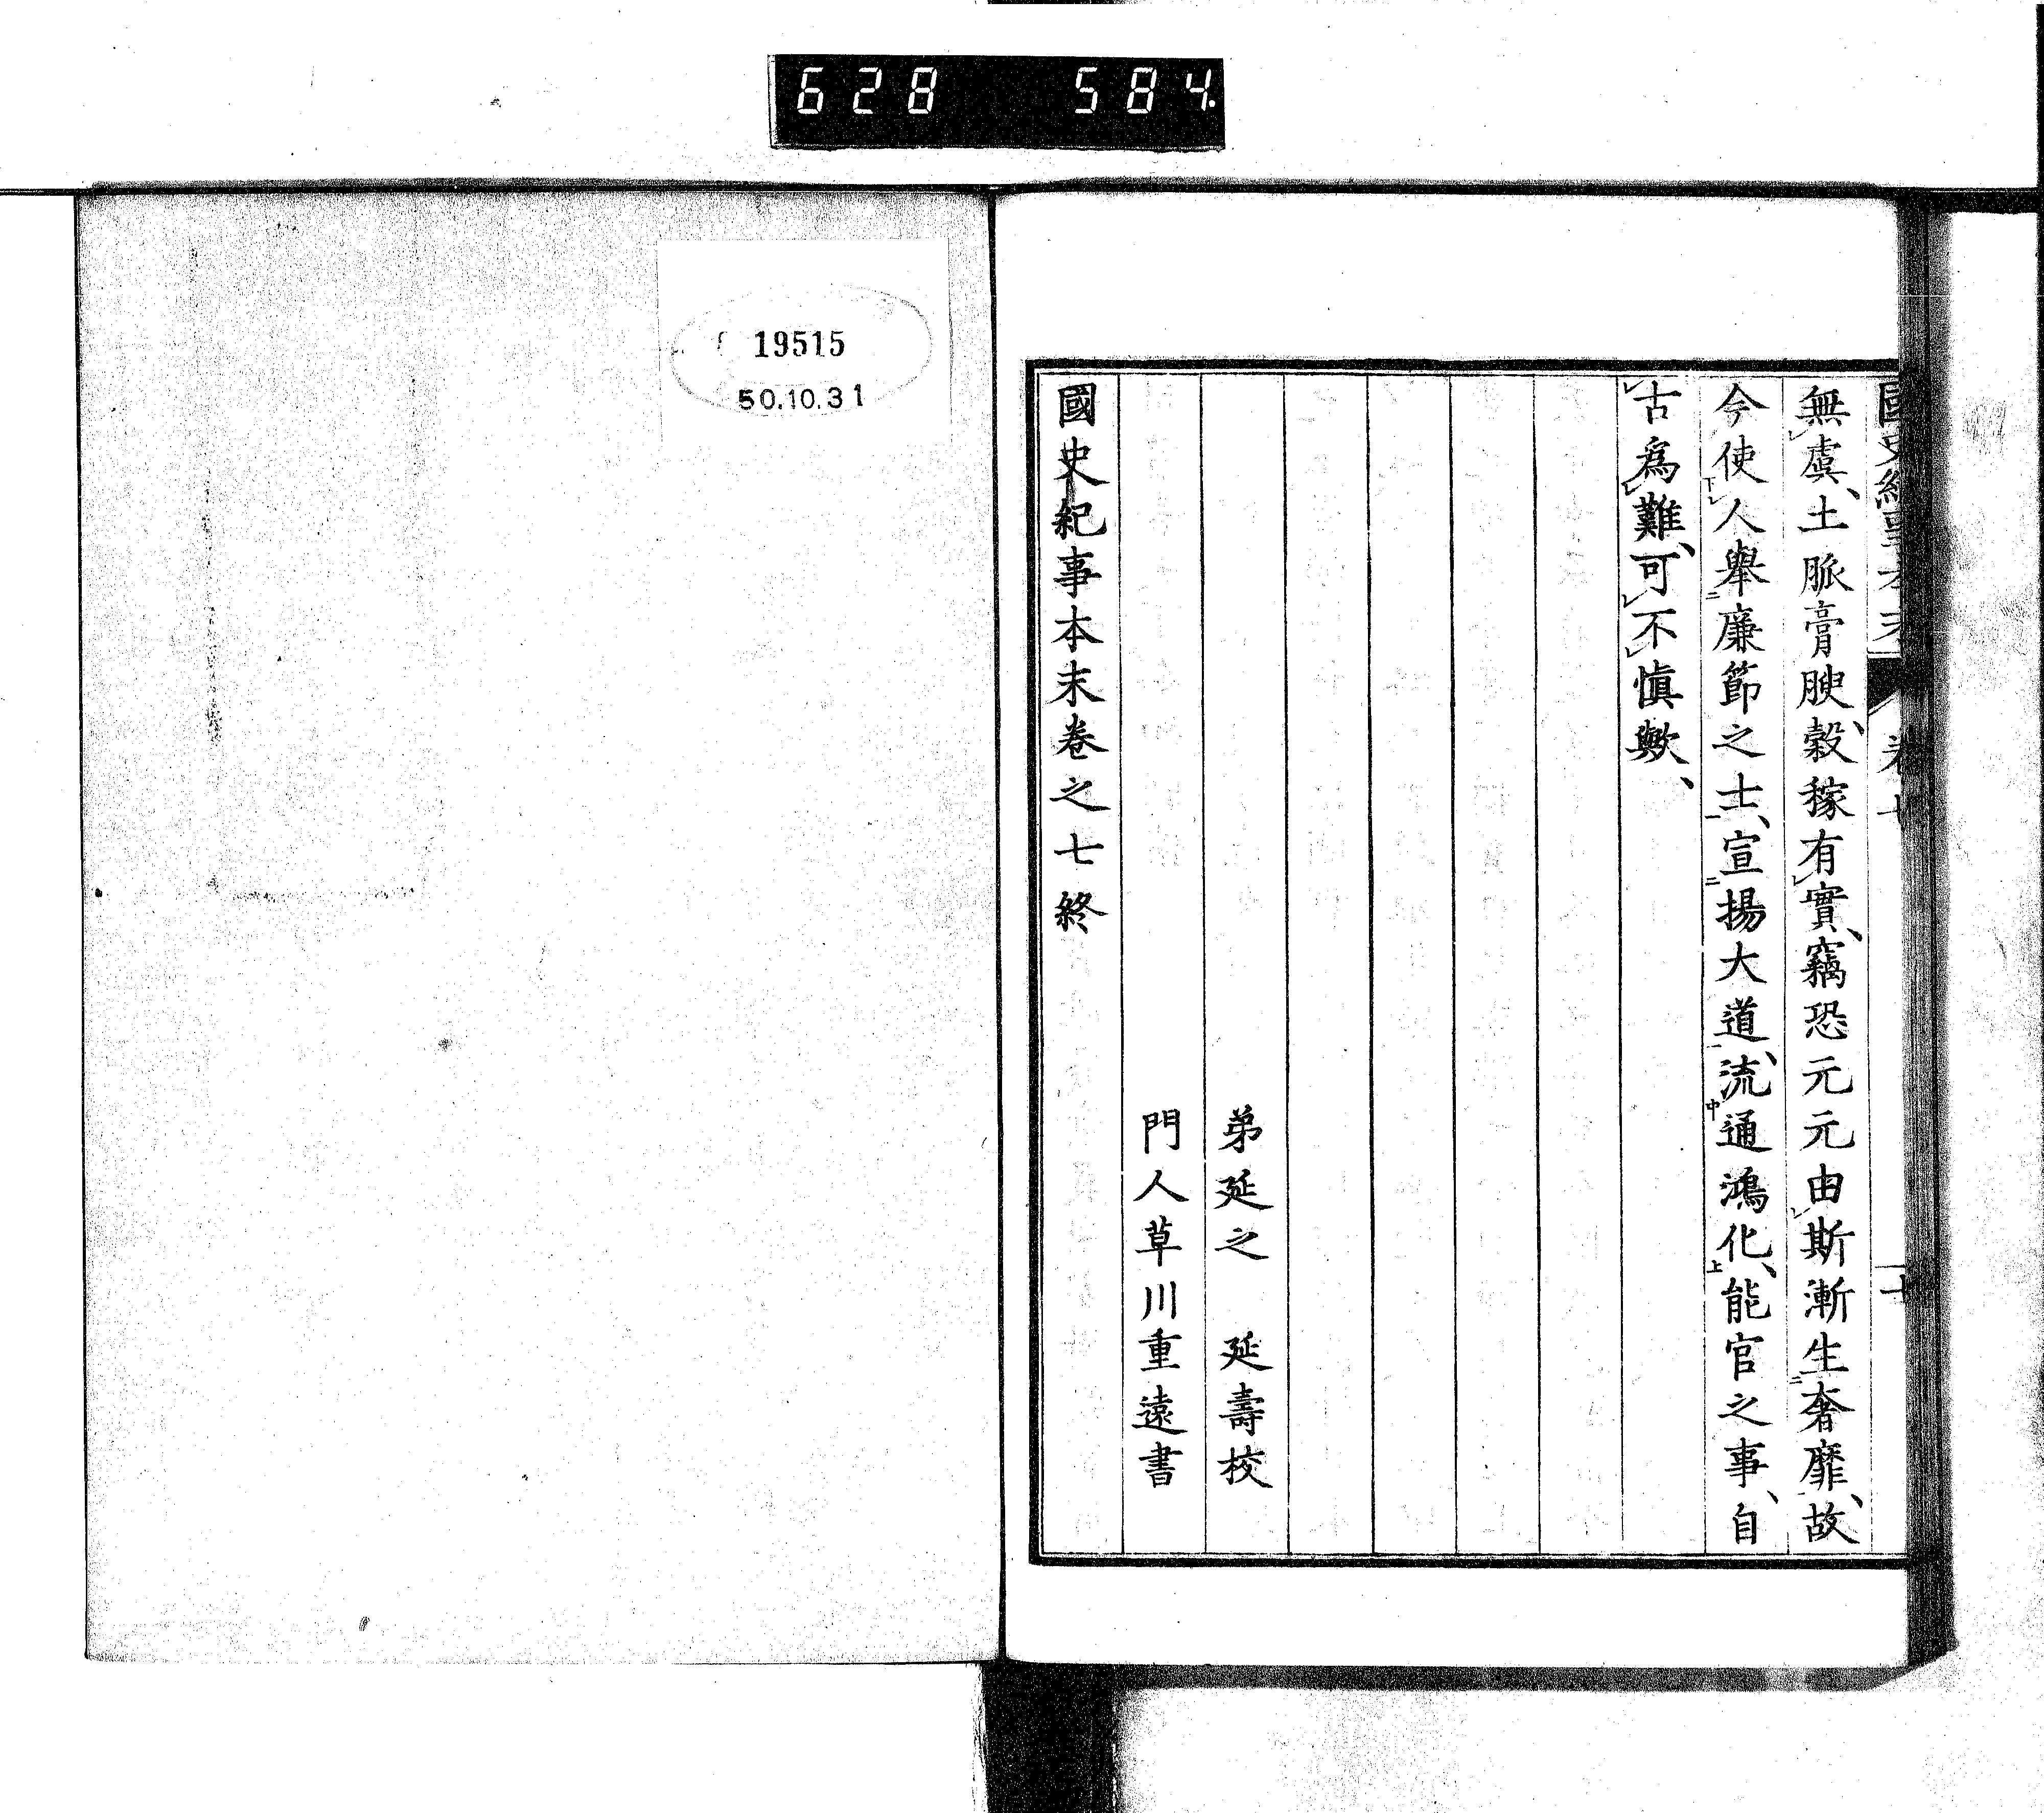 628 584
無虞、土脈膏腴、穀稼有實、竊恐元元由斯漸生奢靡、故
今使人舉廉節之士、宣揚大道、流通鴻化、能官之事、自
古為難、可不慎歟、
弟延之 延壽校
門人草川重遠書
國史紀事本末卷之七終
19515
50.10.31